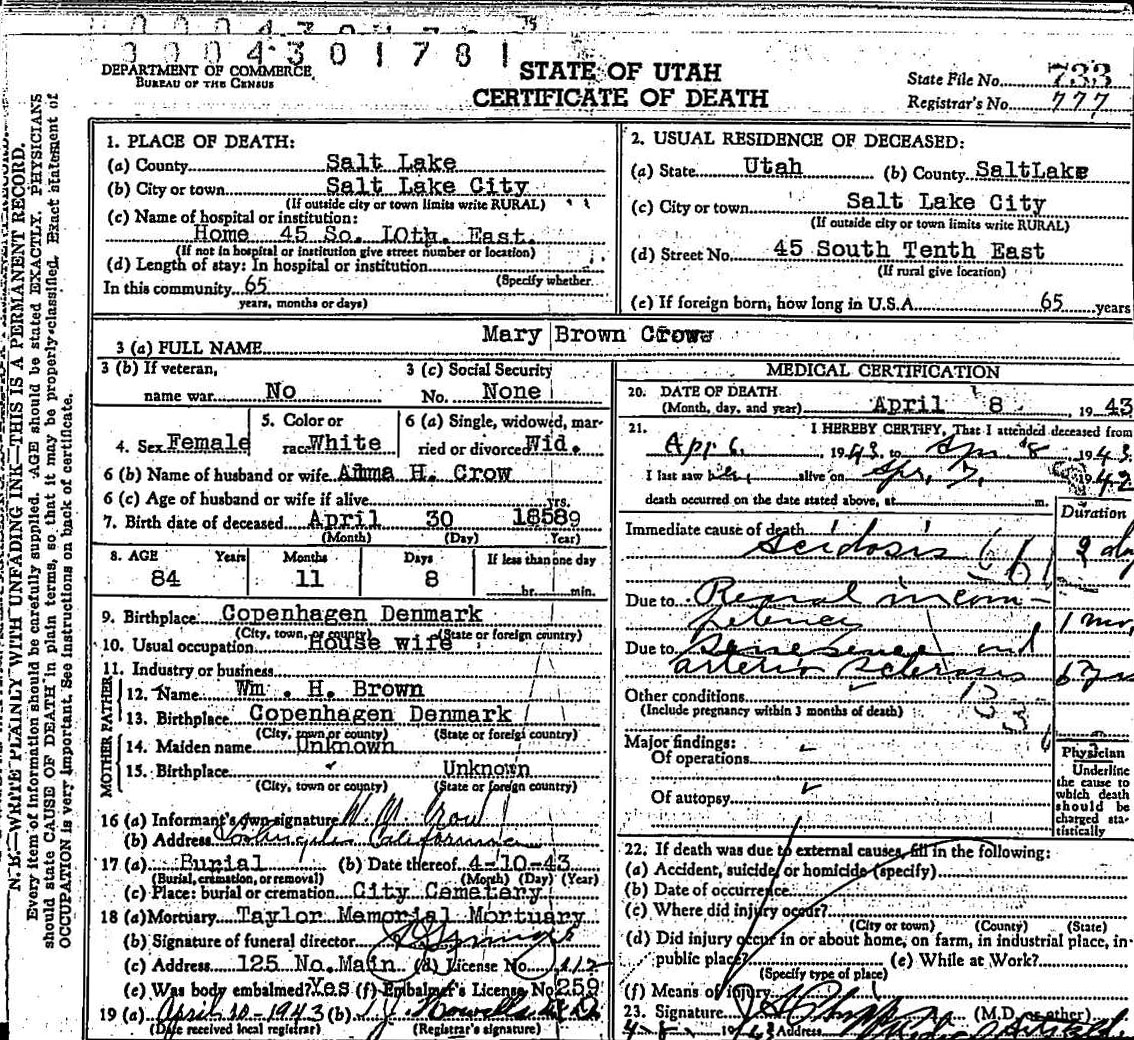 0 0 0 4 3 0 1 7 8 1
DEPARTMENT OF COMMERCE
BUREAU OF THE CENSUS
STATE OF UTAH
CERTIFICATE OF DEATH
State File No. 733
Registrar's No. 777
N. B.—WRITE PLAINLY WITH UNFADING INK—THIS IS A PERMANENT RECORD.
Every item of information should be carefully supplied. AGE should be stated EXACTLY. PHYSICIANS
should state CAUSE OF DEATH in plain terms, so that it may be properly classified. Exact statement of
OCCUPATION is very important. See instructions on back of certificate.
1. PLACE OF DEATH:
(a) County Salt Lake
(b) City or town Salt Lake City
(If outside city or town limits write RURAL)
(c) Name of hospital or institution:
Home 45 So. 10th. East.
(If not in hospital or institution give street number or location)
(d) Length of stay: In hospital or institution
(Specify whether
In this community 65
years, months or days)
2. USUAL RESIDENCE OF DECEASED:
(a) State Utah (b) County SaltLake
(c) City or town Salt Lake City
(If outside city or town limits write RURAL)
(d) Street No. 45 South Tenth East
(If rural give location)
(e) If foreign born, how long in U.S.A. 65 years
3 (a) FULL NAME Mary Brown Crow
3 (b) If veteran,
name war No
3 (c) Social Security
No. None
4. Sex Female
5. Color or
race White
6 (a) Single, widowed, mar-
ried or divorced Wid.
6 (b) Name of husband or wife Alma H. Crow
6 (c) Age of husband or wife if alive yrs.
7. Birth date of deceased April 30 1858
(Month) (Day) (Year)
8. AGE Years Months Days If less than one day
84 11 8 hr. min.
9. Birthplace Copenhagen Denmark
(City, town, or county) (State or foreign country)
10. Usual occupation House wife
11. Industry or business
FATHER
12. Name Wm . H. Brown
13. Birthplace Copenhagen Denmark
(City, town or county) (State or foreign country)
MOTHER
14. Maiden name Unknown
15. Birthplace Unknown
(City, town or county) (State or foreign country)
16 (a) Informant's own signature W. M. Crow
(b) Address Los Angeles California
17 (a) Burial (b) Date thereof 4-10-43
(Burial, cremation, or removal) (Month) (Day) (Year)
(c) Place: burial or cremation City Cemetery
18 (a) Mortuary Taylor Memorial Mortuary
(b) Signature of funeral director
(c) Address 125 No. Main (d) License No. 112
(e) Was body embalmed? Yes (f) Embalmer's License No 259
19 (a) April 10-1943 (b)
(Date received local registrar) (Registrar's signature)
MEDICAL CERTIFICATION
20. DATE OF DEATH
(Month, day, and year) April 8 , 19 43
21. I HEREBY CERTIFY, That I attended deceased from
Apr 6 1943 to Apr. 8 1943
I last saw her alive on Apr. 7, 1943
death occurred on the date stated above, at m.
Duration
Immediate cause of death
Acidosis 2 day
Due to Renal incom-
petency 1 mo.
Due to Senescence and
arterio sclerosis 6 yrs
Other conditions
(Include pregnancy within 3 months of death)
Major findings:
Of operations
Of autopsy
Physician
Underline
the cause to
which death
should be
charged sta-
tistically
22. If death was due to external causes, fill in the following:
(a) Accident, suicide, or homicide (specify)
(b) Date of occurrence
(c) Where did injury occur?
(City or town) (County) (State)
(d) Did injury occur in or about home, on farm, in industrial place, in
public place? (e) While at Work?
(Specify type of place)
(f) Means of injury
23. Signature (M.D. or other)
Address